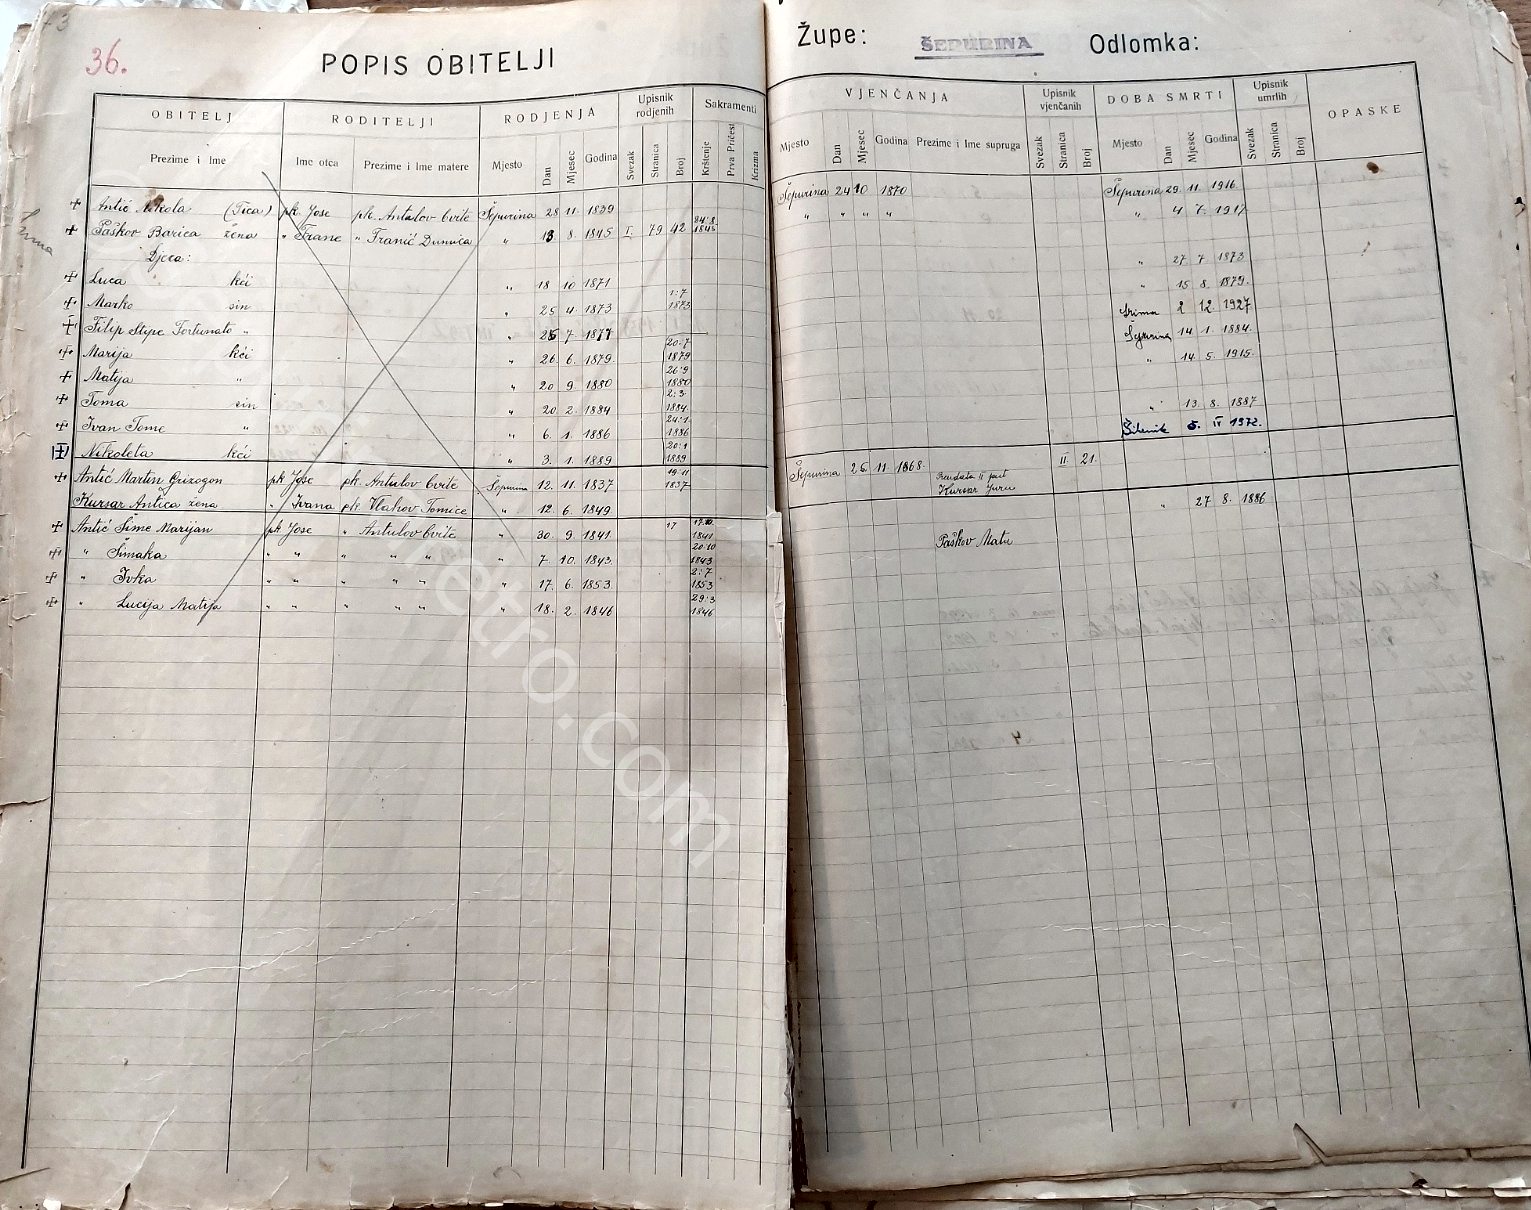 36.
POPIS OBITELJI
Župe: ŠEPURINA Odlomka:
OBITELJ RODITELJI RODJENJA Upisnik rodjenih Sakramenti
Prezime i Ime Ime otca Prezime i Ime matere Mjesto Dan Mjesec Godina Svezak Stranica Broj Krštenje Prva Pričest Krizma
VJENČANJA Upisnik vjenčanih DOBA SMRTI Upisnik umrlih OPASKE
Mjesto Dan Mjesec Godina Prezime i Ime supruga Svezak Stranica Broj Mjesto Dan Mjesec Godina Svezak Stranica Broj
Antić Nikola (Tica) pk. Jose pk. Antulov Cvite Šepurina 28 11. 1839 Šepurina 24 10 1870 Šepurina 29. 11. 1916
Paškov Barica žena " Frane " Franić Dunvica " 13 8. 1845 I. 79 42 24.8. 1845 " " " " " 4 7. 1917
Djeca:
Luca kći " 18 10 1871 " 27 7 1873
Marko sin " 25 4 1873 1.7 1873 " 15 8. 1879.
Filip Stipe Fortunato " " 25 7. 1877 Srima 2 12. 1927
Marija kći " 26 6. 1879. 20.7 1879 Šepurina 14 1. 1884.
Matija " " 20 9. 1880 26.9 1880 " 14 5. 1915.
Toma sin " 20 2. 1884 2.3. 1884.
Ivan Tome " " 6. 1. 1886 24.1. 1886 " 13. 8. 1887
Nikoleta kći " 3. 1. 1889 20.1 1889 Šibenik 5. IV 1972.
Antić Martin Grizogon pk Jose pk. Antulov Cvite Šepurina 12. 11. 1837 19 11 1837 Šepurina 26. 11. 1868. II. 21.
Kursar Antica žena " Ivana pk. Vlahov Tomice " 12. 6. 1849 Kursar Juru " 27. 8. 1886
Antić Šime Marijan pk Jose " Antulov Cvite " 30. 9. 1841. 17 17.10. 1841
" Šimaka " " " " " " 7. 10. 1843. 20.10 1843 Paškov Matu
" Ivka " " " " " " 17. 6. 1853 2.7 1853
" Lucija Matija " " " " " " 18. 2. 1846 29.3 1846
Srima
retro.com